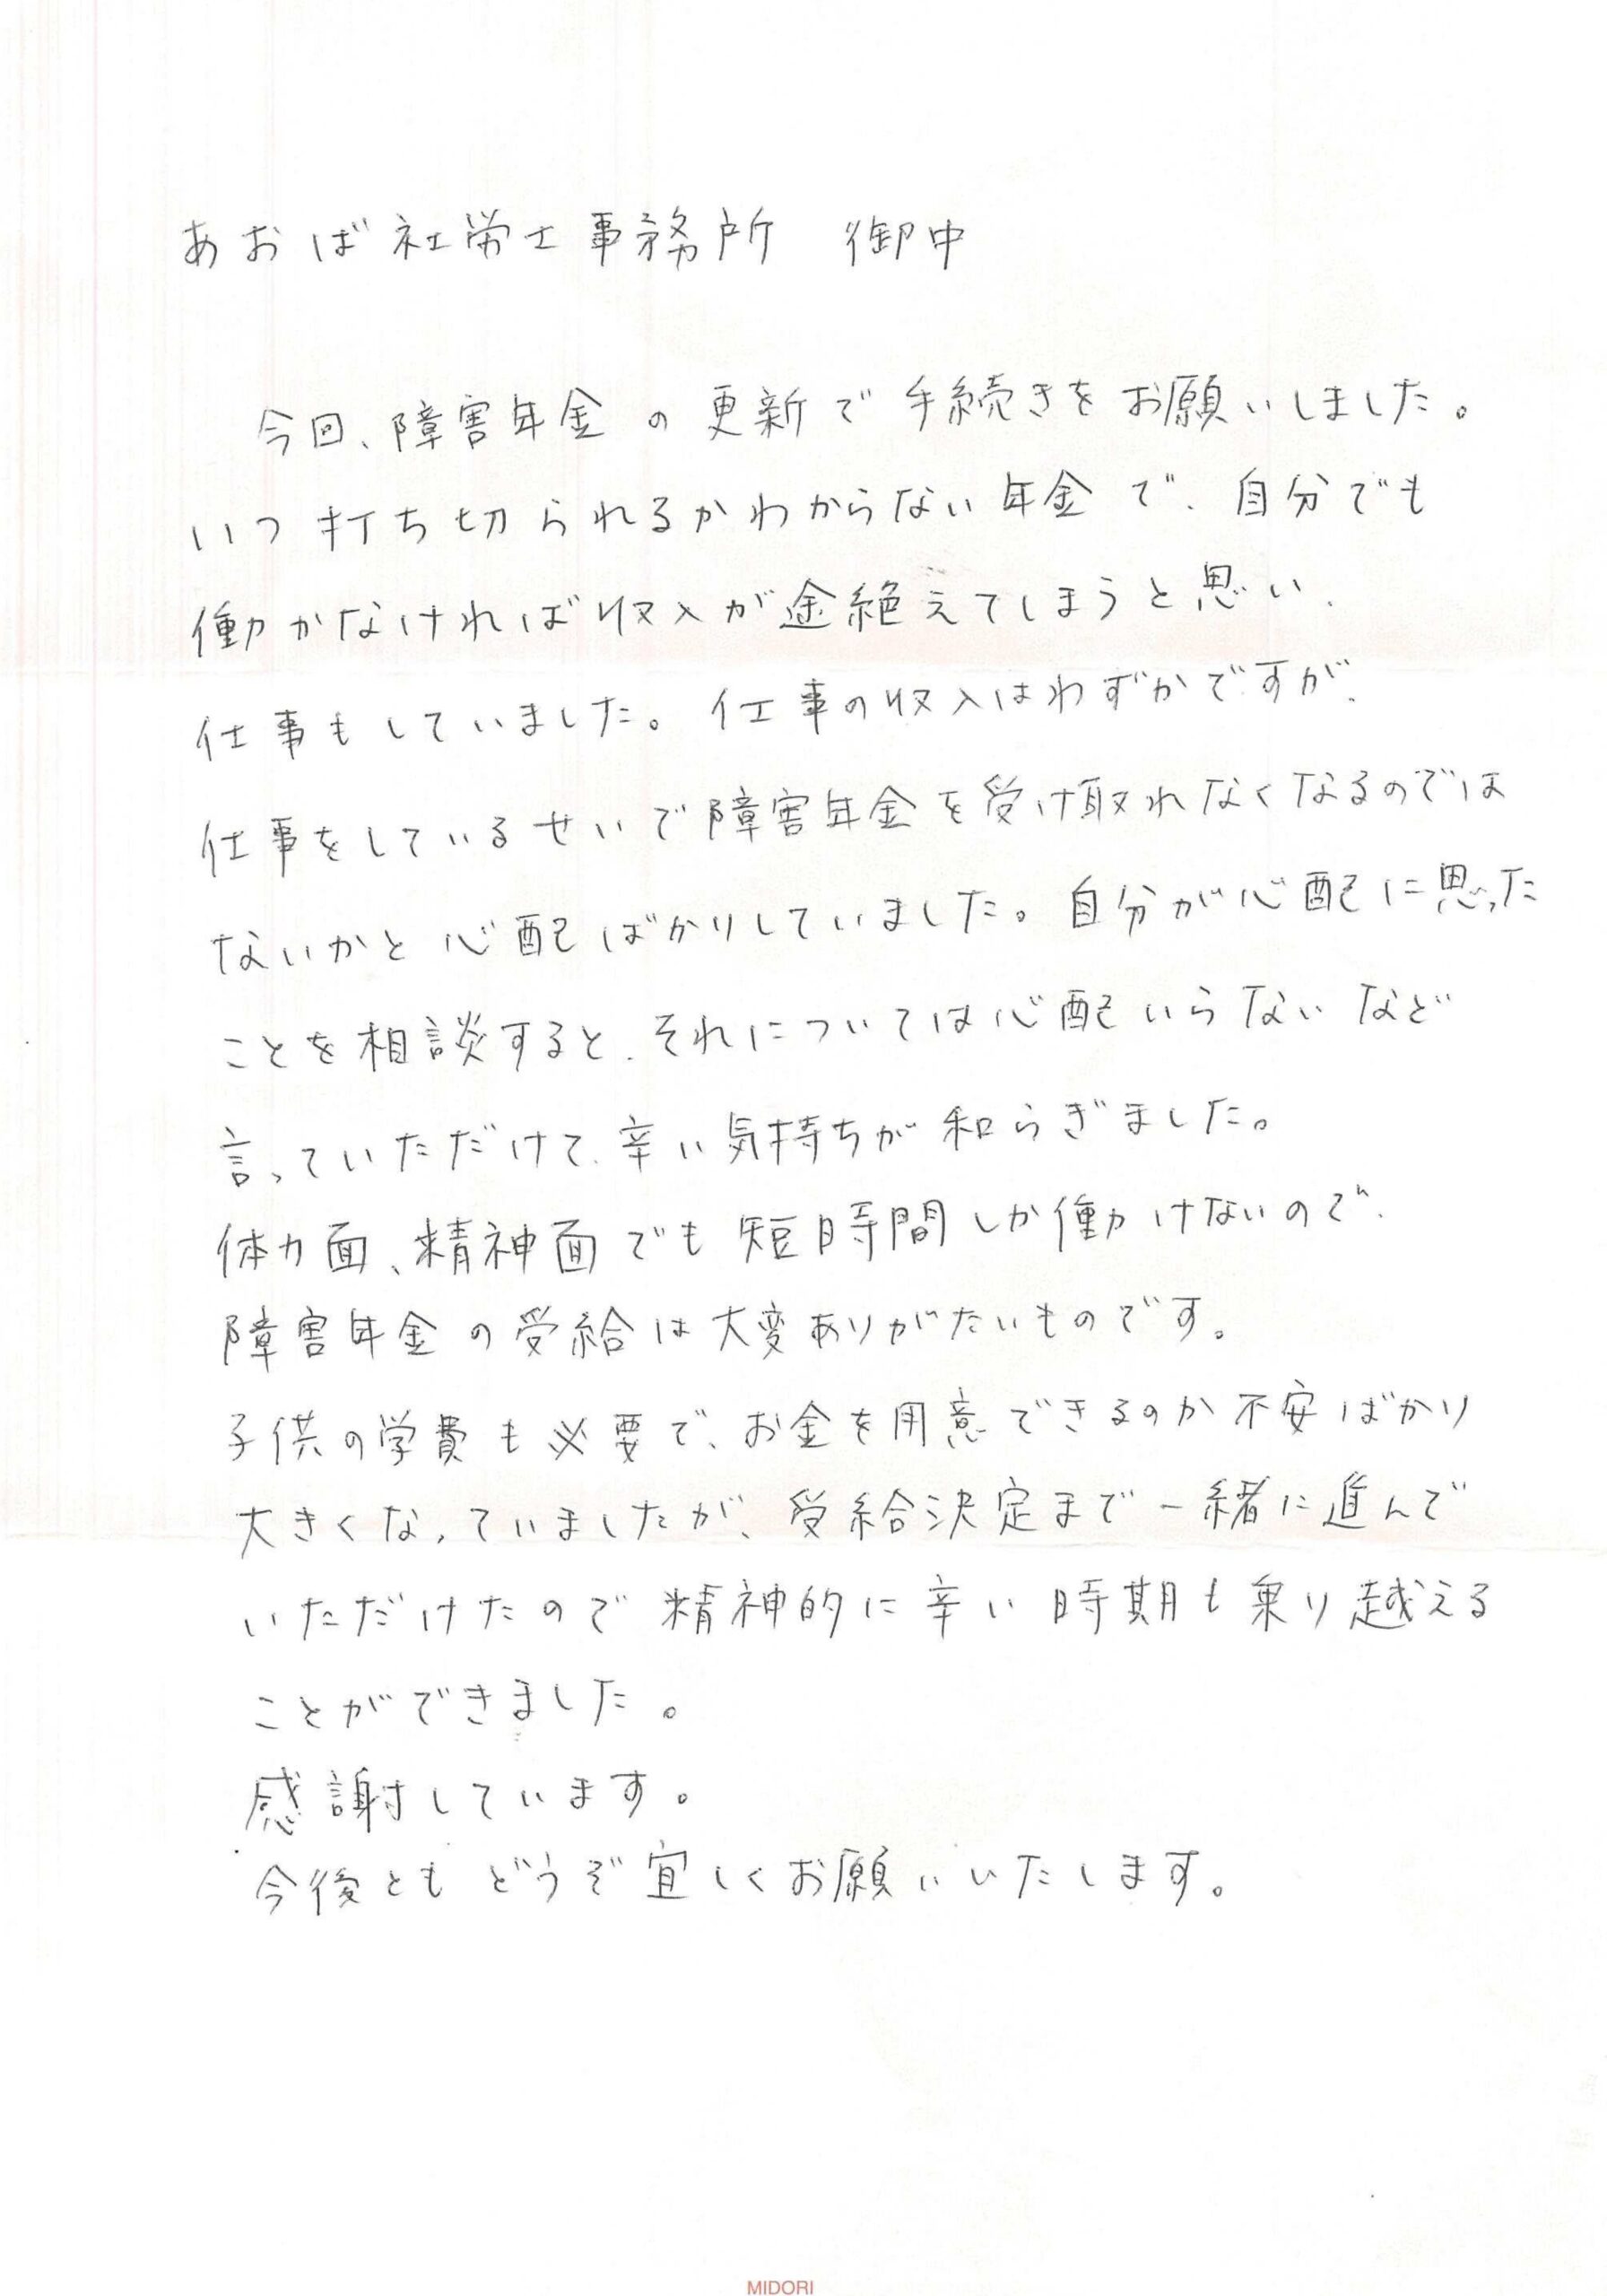 あおば社労士事務所　御中
今回、障害年金の更新で手続きをお願いしました。
いつ打ち切られるかわからない年金で、自分でも
働かなければ収入が途絶えてしまうと思い、
仕事もしていました。仕事の収入はわずかですが、
仕事をしているせいで障害年金を受け取れなくなるのでは
ないかと心配ばかりしていました。自分が心配に思った
ことを相談すると、それについては心配いらないなど
言っていただけて、辛い気持ちが和らぎました。
体力面、精神面でも短時間しか働けないので、
障害年金の受給は大変ありがたいものです。
子供の学費も必要で、お金を用意できるのか不安ばかり
大きくなっていましたが、受給決定まで一緒に進んで
いただけたので精神的に辛い時期も乗り越える
ことができました。
感謝しています。
今後ともどうぞ宜しくお願いいたします。
MIDORI